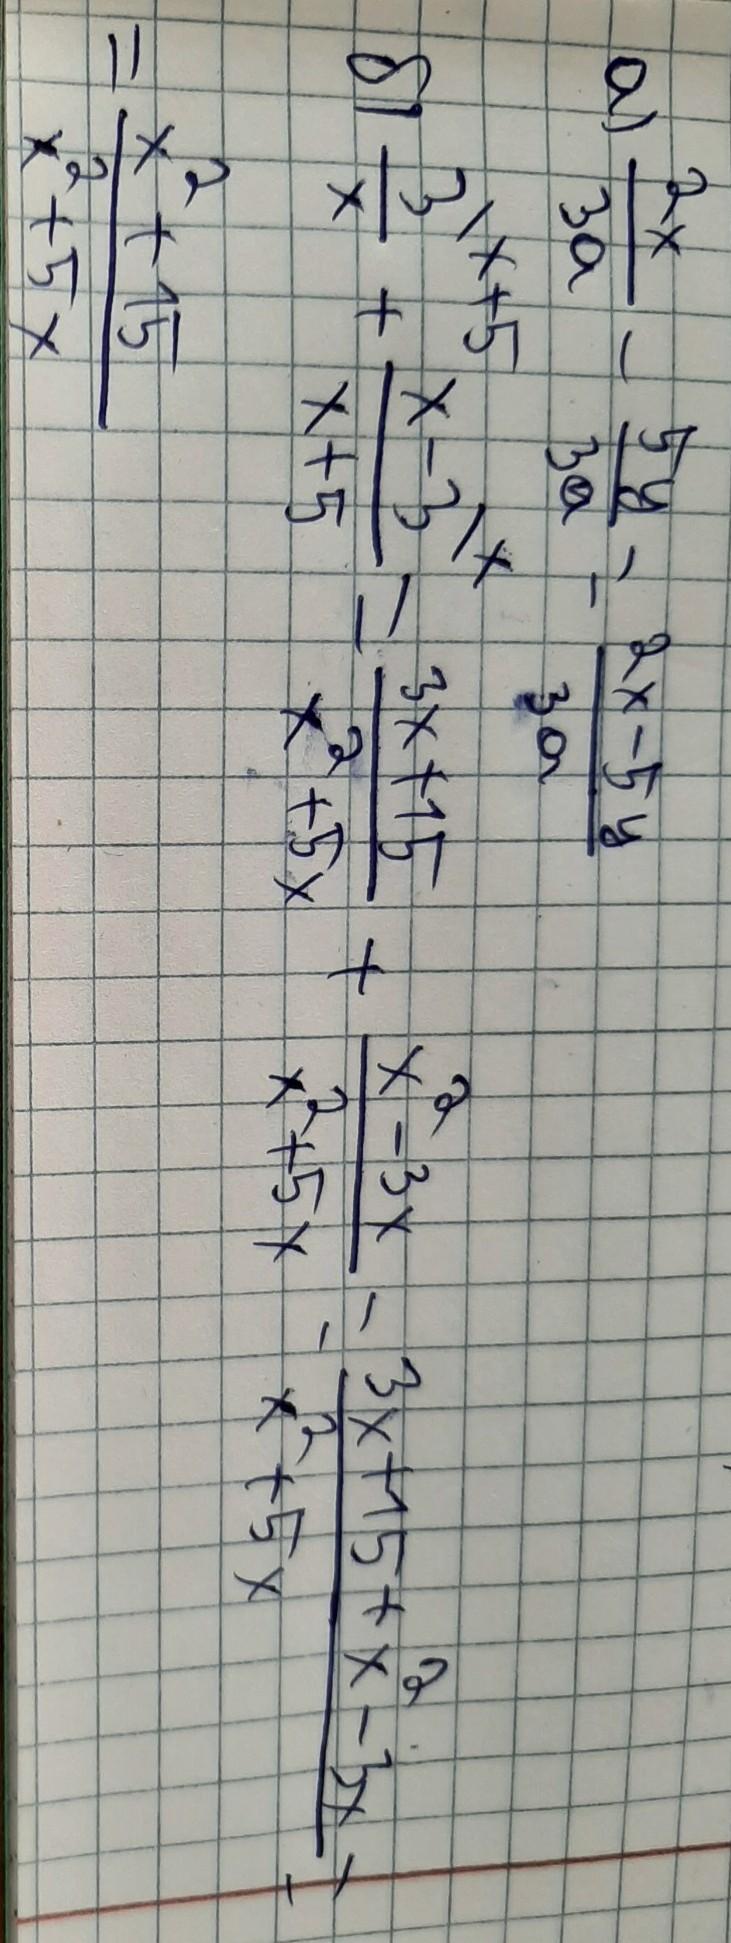 а) 2x/3a - 5y/3a = (2x-5y)/3a
б) 3\x+5/x + (x-3)\x/(x+5) = (3x+15)/(x²+5x) + (x²-3x)/(x²+5x) = (3x+15+x²-3x)/(x²+5x) =
= (x²+15)/(x²+5x)